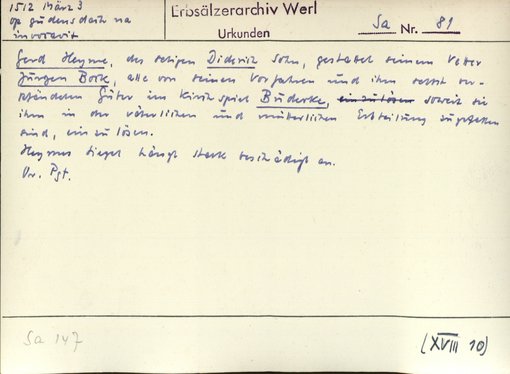 1512 März 3
op gudensdach na
invocavit
Erbsälzerarchiv Werl
Urkunden
Sa Nr. 81
Gerd Heyme, des seligen Diderich Sohn, gestattet seinem Vetter
Jürgen Bock, alle von seinen Vorfahren und ihm selbst ver-
pfändeten Güter im Kirchspiel Büderke, einzulösen soweit sie
ihm in der väterlichen und mütterlichen Erbteilung zugefallen
sind, einzulösen.
Heymes Siegel hängt stark beschädigt an.
Or. Pgt.
Sa 147
(XVIII 10)